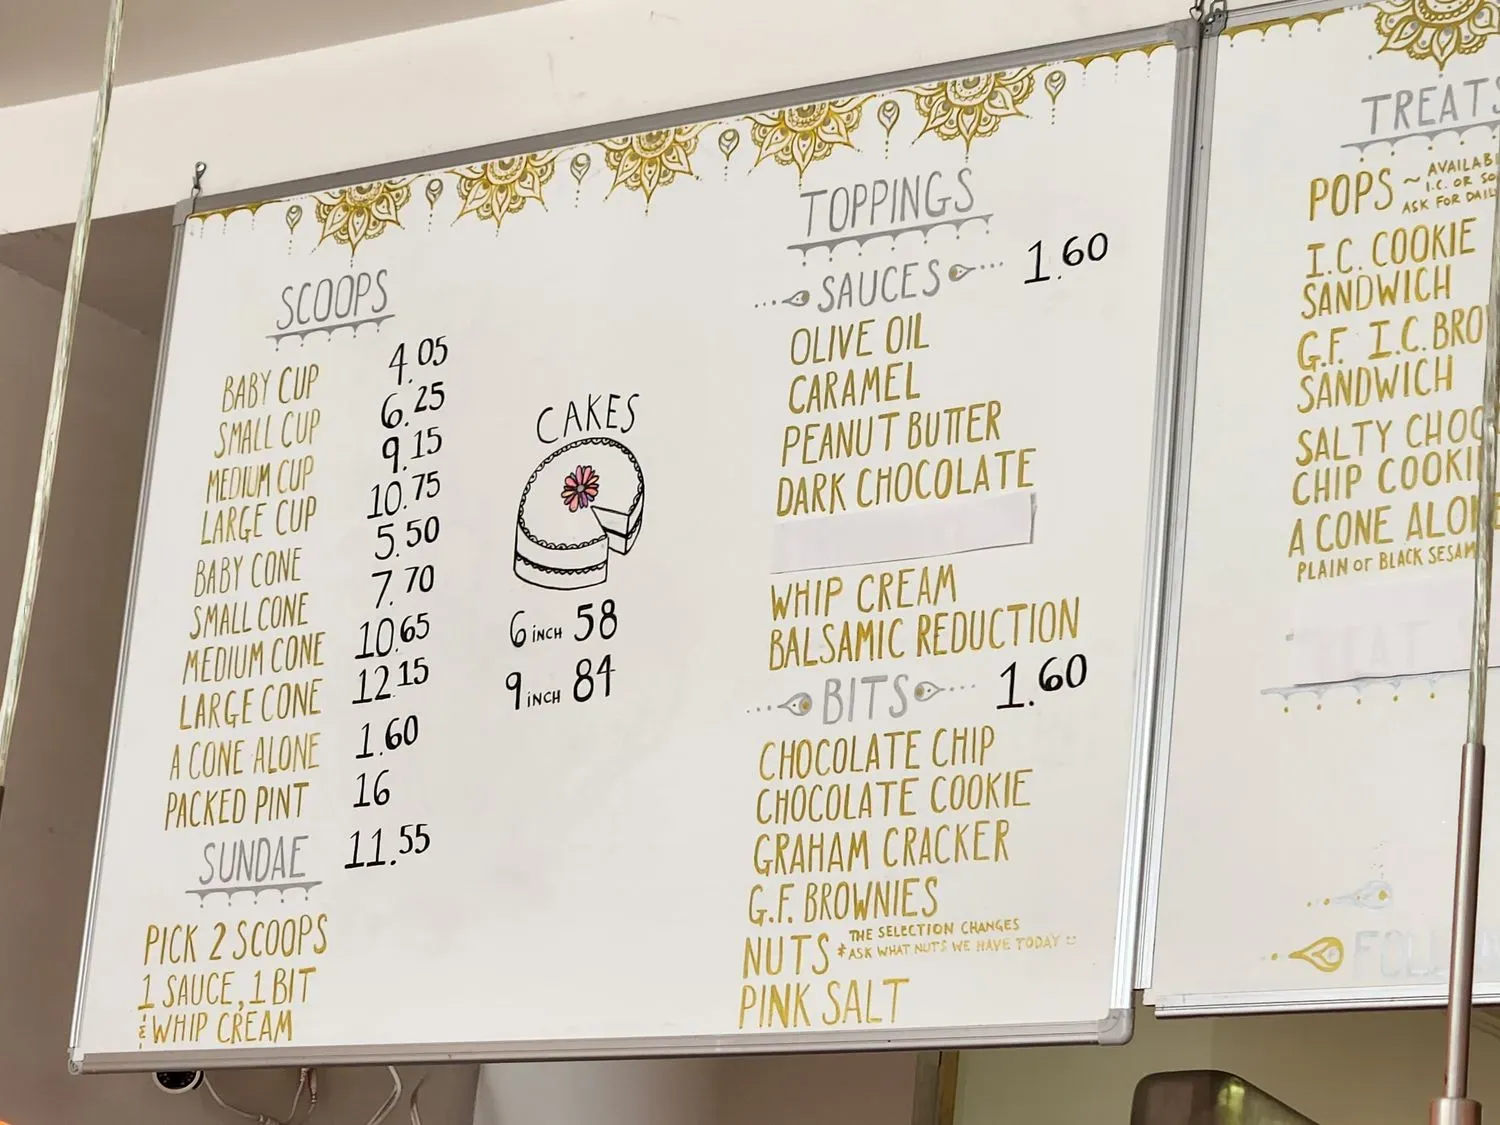 SCOOPS
BABY CUP 4.05
SMALL CUP 6.25
MEDIUM CUP 9.15
LARGE CUP 10.75
BABY CONE 5.50
SMALL CONE 7.70
MEDIUM CONE 10.65
LARGE CONE 12.15
A CONE ALONE 1.60
PACKED PINT 16
SUNDAE 11.55
PICK 2 SCOOPS
1 SAUCE, 1 BIT
& WHIP CREAM
CAKES
6 INCH 58
9 INCH 84
TOPPINGS
SAUCES 1.60
OLIVE OIL
CARAMEL
PEANUT BUTTER
DARK CHOCOLATE
WHIP CREAM
BALSAMIC REDUCTION
BITS 1.60
CHOCOLATE CHIP
CHOCOLATE COOKIE
GRAHAM CRACKER
G.F. BROWNIES
NUTS *THE SELECTION CHANGES
*ASK WHAT NUTS WE HAVE TODAY
PINK SALT
TREATS
POPS ~ AVAILAB
I.C. OR SO
ASK FOR DAIL
I.C. COOKIE
SANDWICH
G.F. I.C. BRO
SANDWICH
SALTY CHOC
CHIP COOKI
A CONE ALON
PLAIN or BLACK SESAM